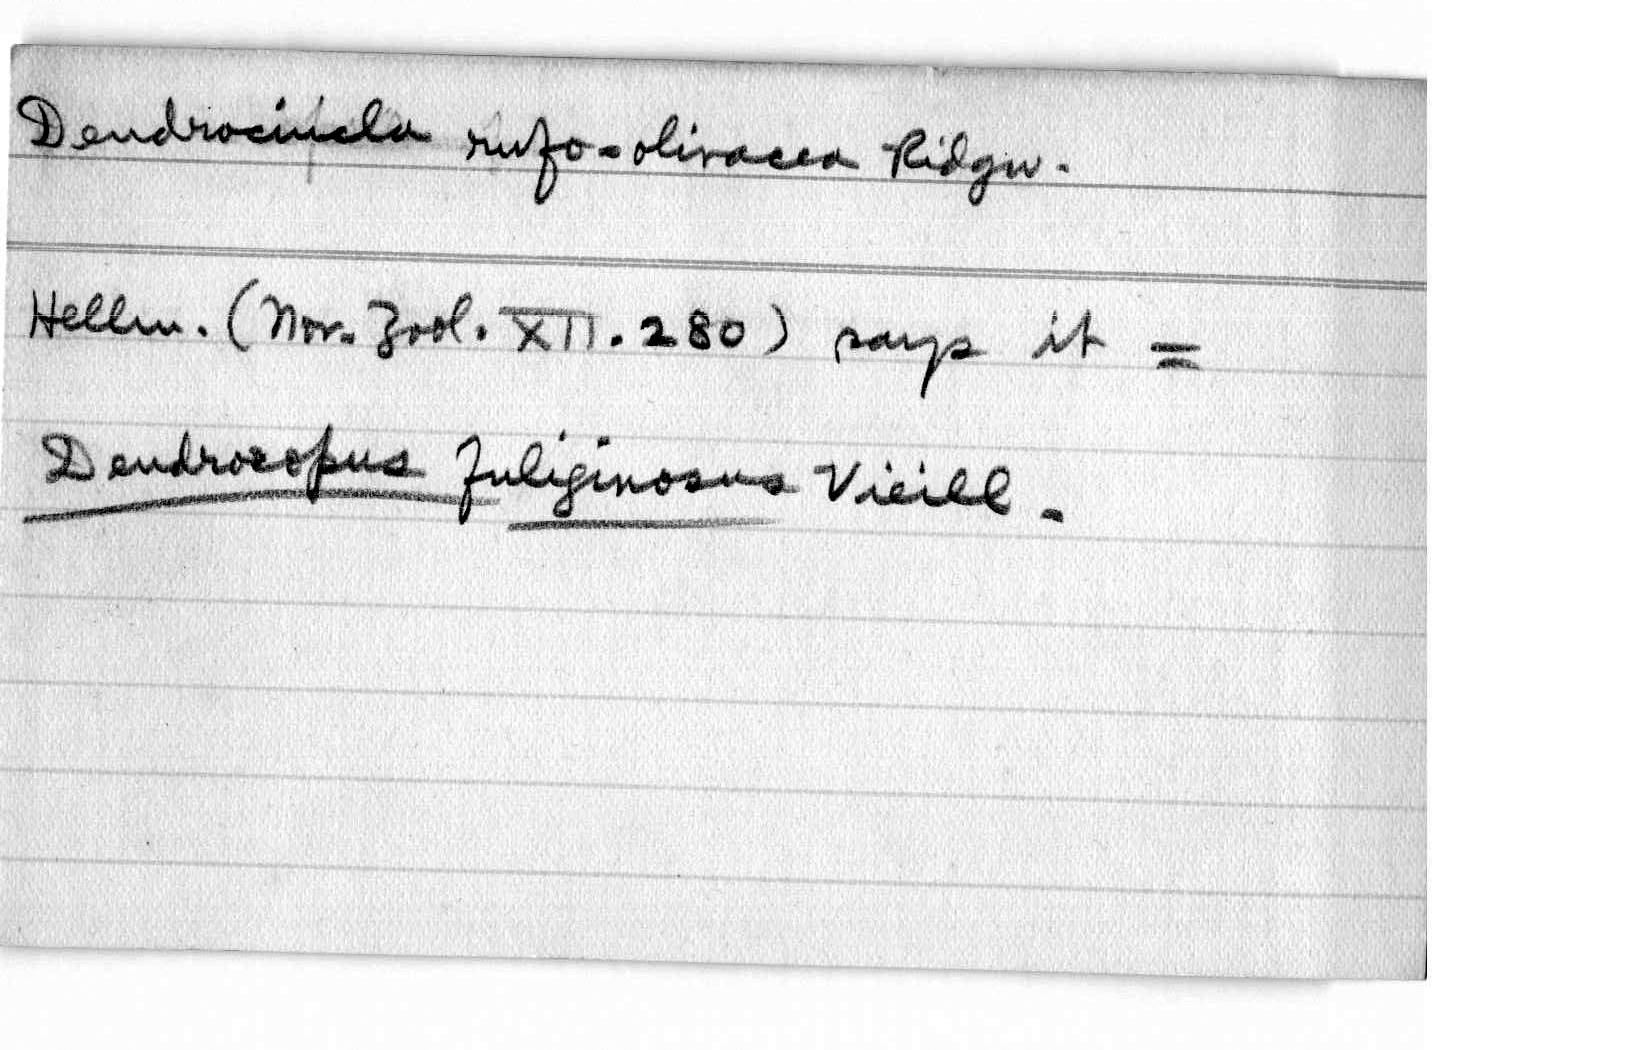 Dendrocincla rufo-olivacea Ridgw.
Hellm. (Nov. Zool. XII. 280) says it =
Dendrocopus fuliginosus Vieill.